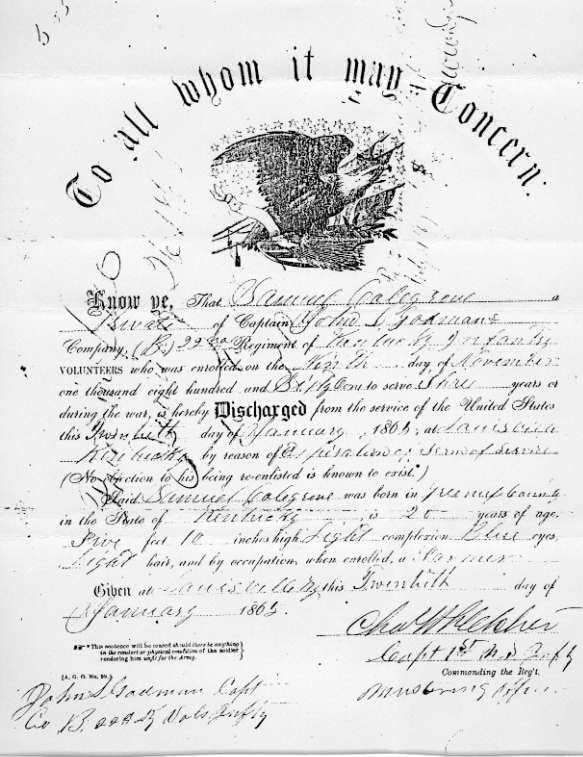 To all whom it may Concern:
Know ye, That Samuel Colegrove a
Private of Captain John S Godmans
Company, (B,) 22nd Regiment of Kentucky Infantry
VOLUNTEERS who was enrolled on the Ninth day of November
one thousand eight hundred and Sixty one to serve Three years or
during the war, is hereby Discharged from the service of the United States
this Twentieth day of January, 1865, at Louisville
Kentucky by reason of Expiration of Term of Service
(No objection to his being re-enlisted is known to exist.*)
Said Samuel Colegrove was born in County
in the State of Kentucky is 20 years of age,
Five feet 10 inches high, Light complexion, Blue eyes,
Light hair, and by occupation, when enrolled, a Farmer
Given at Louisville Ky this Twentieth day of
January 1865.
*This sentence will be erased should there be anything
in the conduct or physical condition of the soldier
rendering him unfit for the Army.
Chas H Fletcher
Capt 1st Inf'y
Commanding the Reg't.
[A. G. O. No. 99.]
John S Godman Capt
Mustering
Co B. 22d Ky Vols Infty